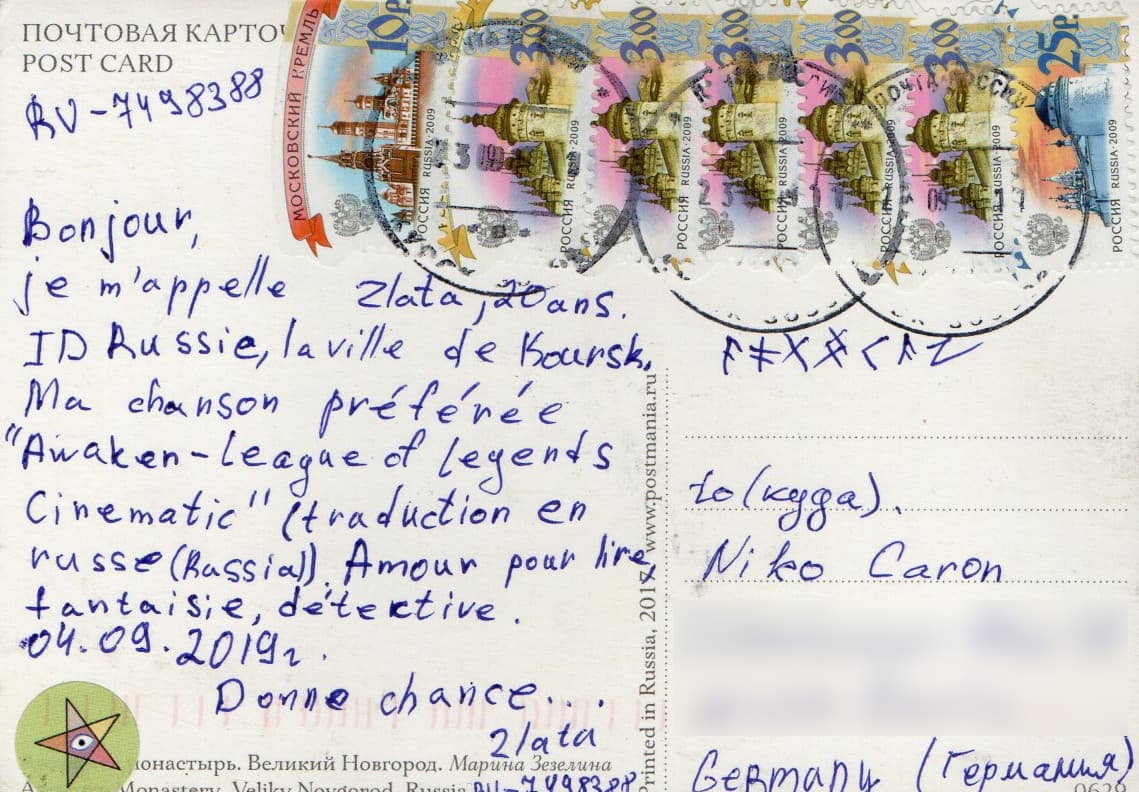 ПОЧТОВАЯ КАРТОЧ
POST CARD
RU-7498388
МОСКОВСКИЙ КРЕМЛЬ
10р
РОССИЯ RUSSIA·2009
3.00
РОССИЯ RUSSIA·2009
3.00
РОССИЯ RUSSIA·2009
3.00
РОССИЯ RUSSIA·2009
3.00
РОССИЯ RUSSIA·2009
3.00
РОССИЯ RUSSIA·2009
25р.
РОССИЯ RUSSIA·2009
Bonjour,
je m'appelle Zlata, 20 ans.
ID Russie, la ville de Koursk.
Ma chanson préférée
"Awaken-league of legends
Cinematic" (traduction en
russe (Russia)). Amour pour lire,
fantaisie, détektive.
04.09.2019г.
Donne chance...
Zlata
онастырь. Великий Новгород. Марина Зезелина
Monastery. Veliky Novgorod. Russia
RU-7498388
Printed in Russia, 2017 www.postmania.ru
to (куда).
Niko Caron
Germany (Германия)
0629